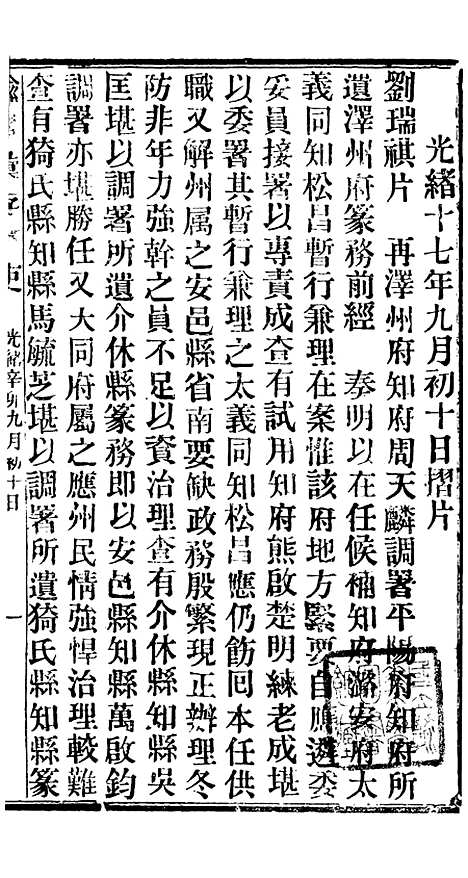 光緒十七年九月初十日摺片
劉瑞祺片　再澤州府知府周天麟調署平陽府知府所
遺澤州府篆務前經　　奏明以在任候補知府潞安府太
義同知松昌暫行兼理在案惟該府地方緊要自應遴委
妥員接署以專責成查有試用知府熊啟楚明練老成堪
以委署其暫行兼理之太義同知松昌應仍飭囘本任供
職又解州属之安邑縣省南要缺政務殷繁現正辦理冬
防非年力強幹之員不足以資治理查有介休縣知縣吳
匡堪以調署所遺介休縣篆務即以安邑縣知縣萬啟鈞
調署亦堪勝任又大同府屬之應州民情強悍治理較難
查有猗氏縣知縣馬毓芝堪以調署所遺猗氏縣知縣篆
光緒辛卯九月初十日
一